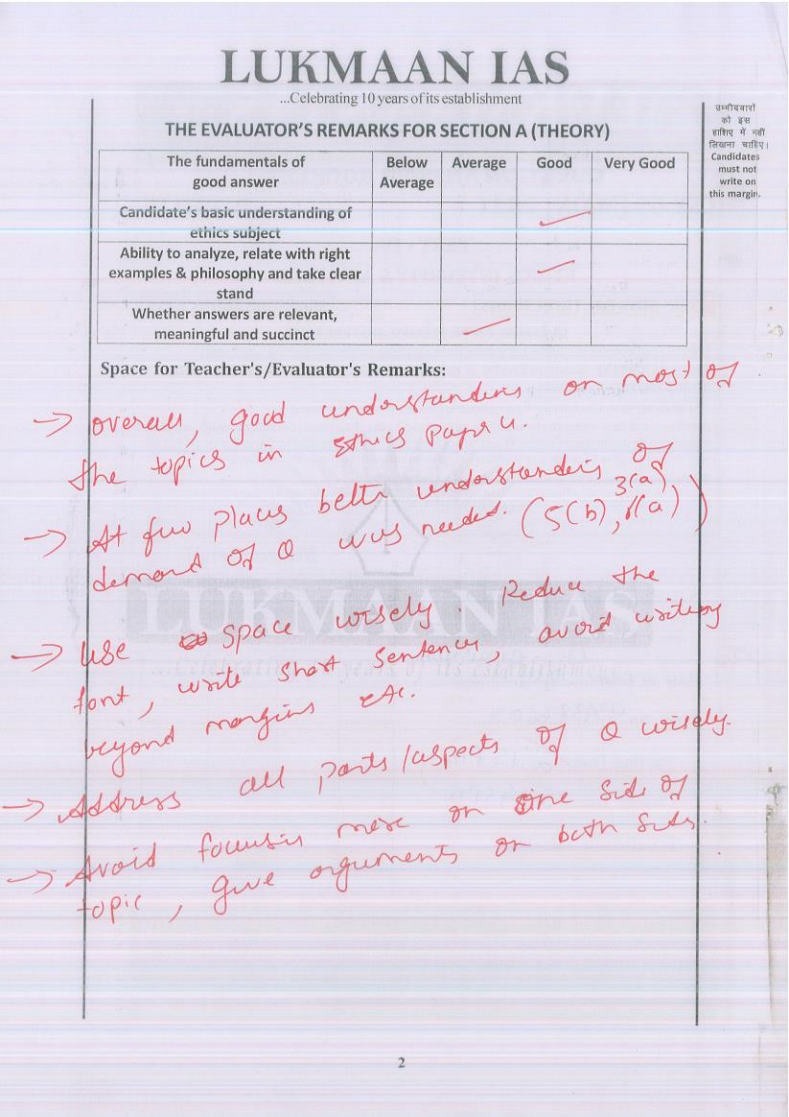 LUKMAAN IAS
...Celebrating 10 years of its establishment
THE EVALUATOR'S REMARKS FOR SECTION A (THEORY)
उम्मीदवारों
को इस
हाशिए में नहीं
लिखना चाहिए।
Candidates
must not
write on
this margin.
The fundamentals of good answer | Below Average | Average | Good | Very Good
Candidate's basic understanding of
ethics subject
Ability to analyze, relate with right
examples & philosophy and take clear
stand
Whether answers are relevant,
meaningful and succinct
Space for Teacher's/Evaluator's Remarks:
→ overall, good understanding on most of
the topics in Ethics Paper 4.
→ At few places better understanding of
demand of Q was needed. (5(b), 3(a), 1(a))
→ Use space wisely. Reduce the
font, write short sentences, avoid writing
beyond margins etc.
→ Address all parts/aspects of Q wisely.
→ Avoid focusing more on one side of
topic, give arguments on both sides.
LUKMAAN IAS
2